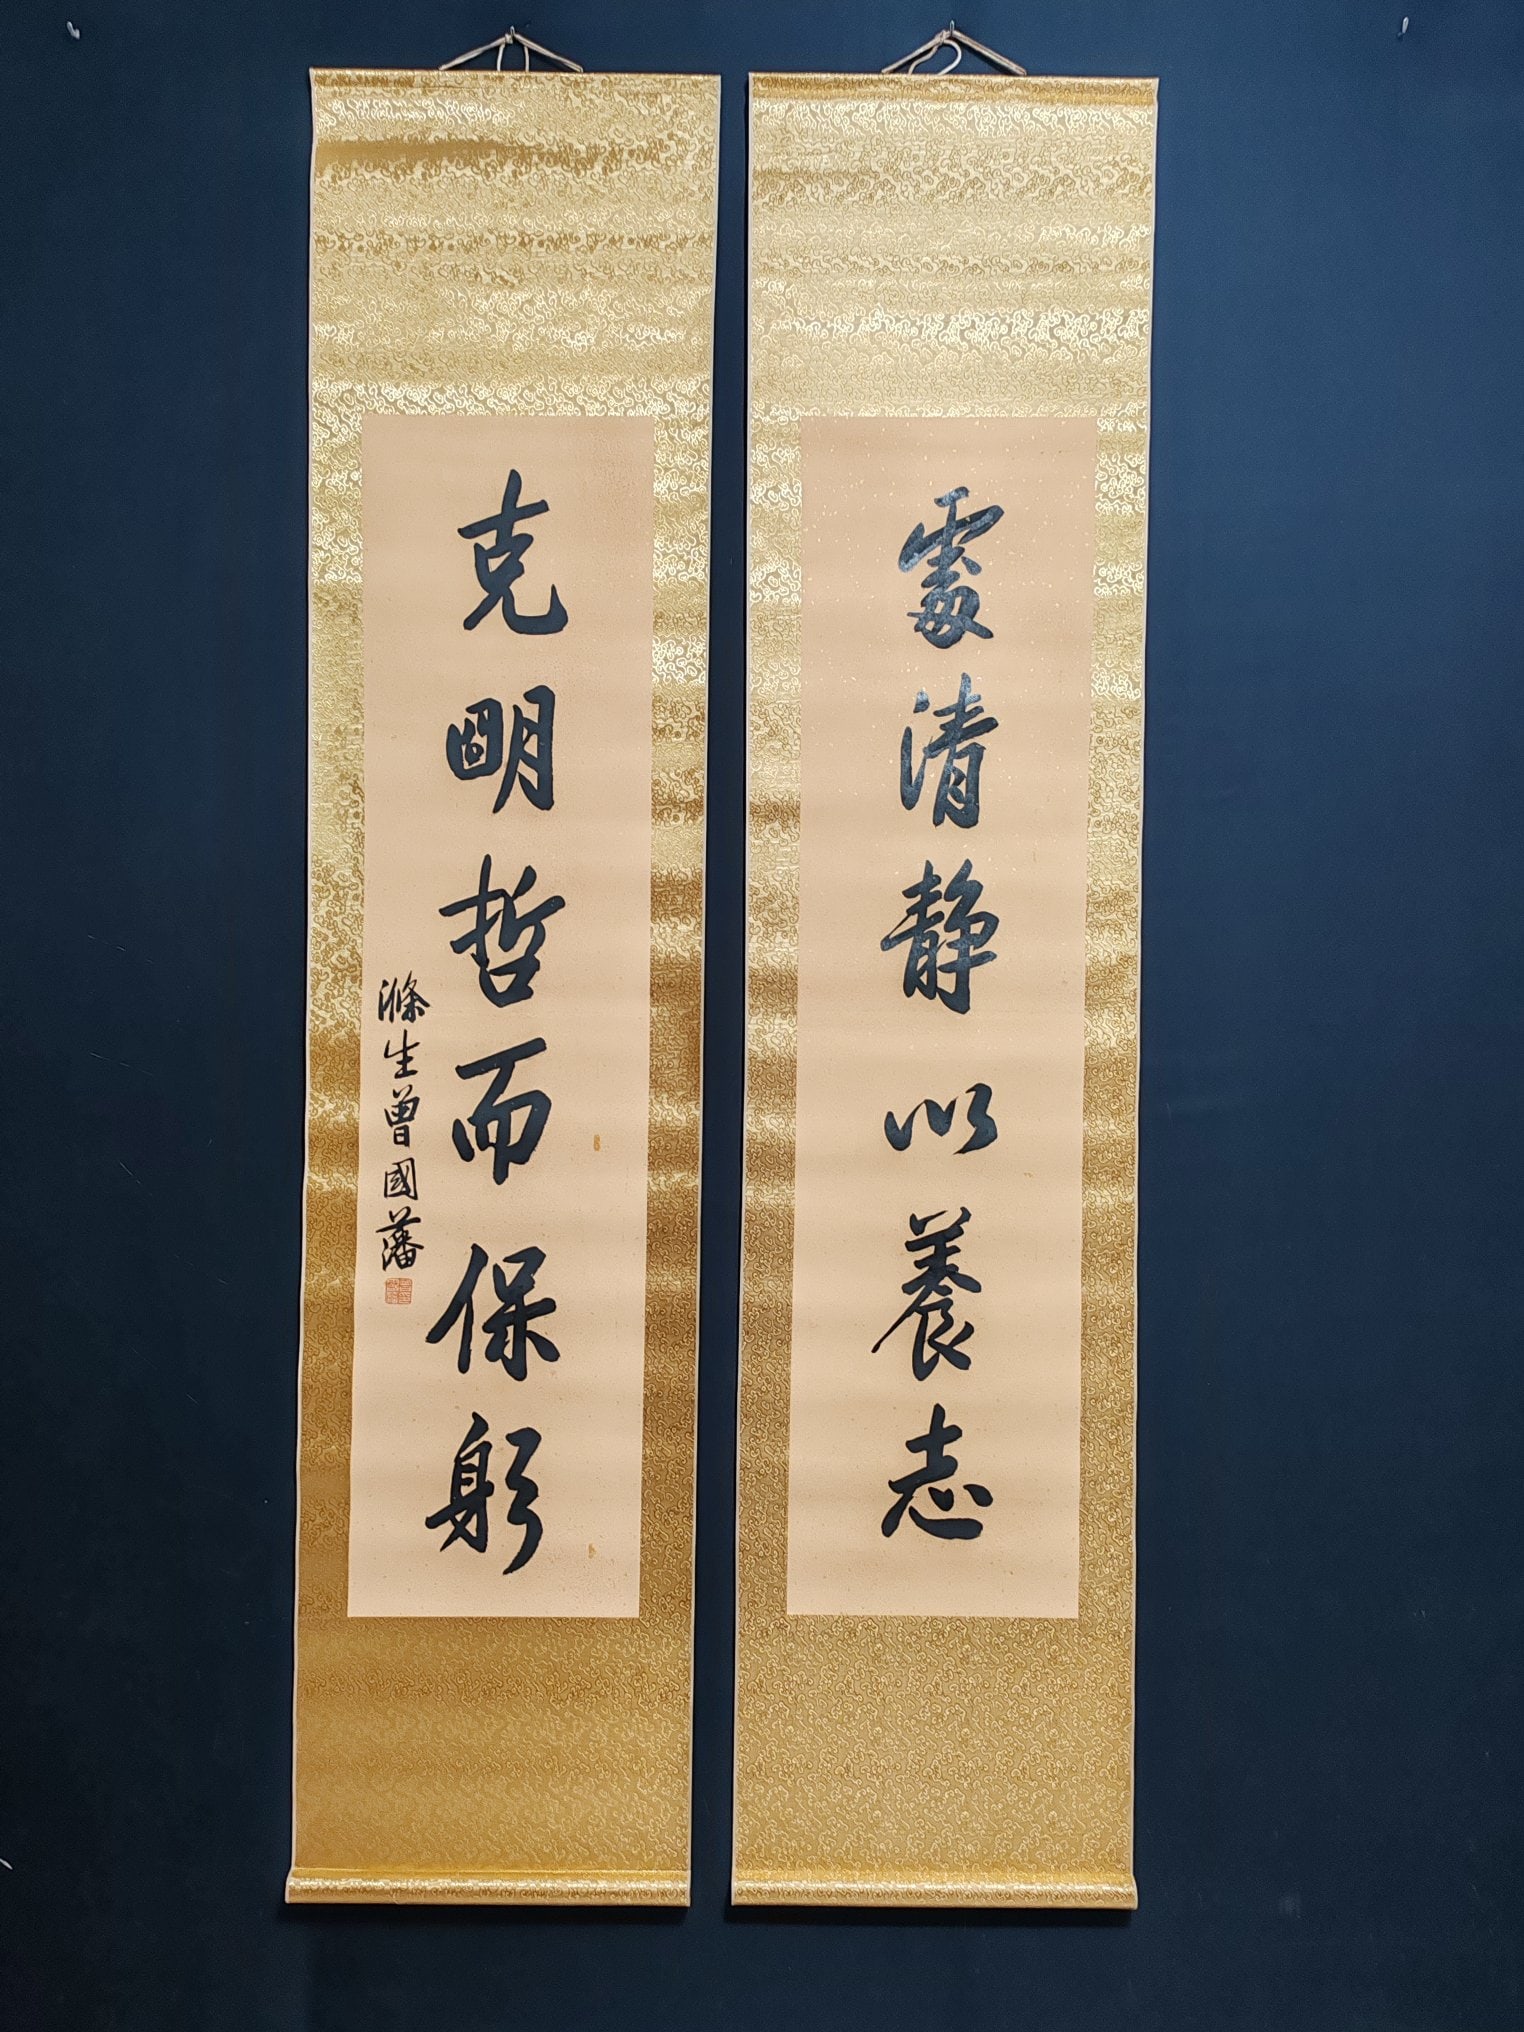 處清静以養志
克明哲而保躬
滌生曾國藩